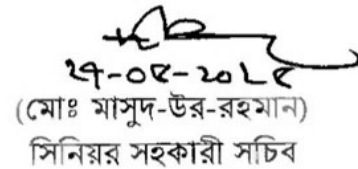 ২৭-০৫-২০২৫
(মোঃ মাসুদ-উর-রহমান)
সিনিয়র সহকারী সচিব